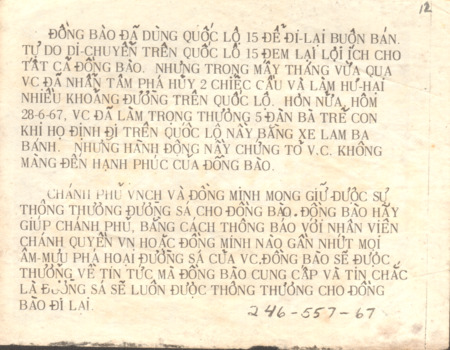 12
ĐỒNG BÀO ĐÃ DÙNG QUỐC LỘ 15 ĐỂ ĐI-LẠI BUÔN BÁN.
TỰ DO DI-CHUYỂN TRÊN QUỐC LỘ 15 ĐEM LẠI LỢI ÍCH CHO
TẤT CẢ ĐỒNG BÀO. NHƯNG TRONG MẤY THÁNG VỪA QUA
VC ĐÃ NHẪN TÂM PHÁ HỦY 2 CHIẾC CẦU VÀ LÀM HƯ-HẠI
NHIỀU KHOẢNG ĐƯỜNG TRÊN QUỐC LỘ. HƠN NỮA, HÔM
28-6-67, VC ĐÃ LÀM TRỌNG THƯƠNG 5 ĐÀN BÀ TRẺ CON
KHI HỌ ĐỊNH ĐI TRÊN QUỐC LỘ NÀY BẰNG XE LAM BA
BÁNH. NHƯNG HÀNH ĐỘNG NÀY CHỨNG TỎ V.C. KHÔNG
MÀNG ĐẾN HẠNH PHÚC CỦA ĐỒNG BÀO.
CHÁNH PHỦ VNCH VÀ ĐỒNG MINH MONG GIỮ ĐƯỢC SỰ
THÔNG THƯƠNG ĐƯỜNG SÁ CHO ĐỒNG BÀO. ĐỒNG BÀO HÃY
GIÚP CHÁNH PHỦ, BẰNG CÁCH THÔNG BÁO VỚI NHÂN VIÊN
CHÁNH QUYỀN VN HOẶC ĐỒNG MINH NÀO GẦN NHỨT MỌI
ÂM-MƯU PHÁ HOẠI ĐƯỜNG SÁ CỦA VC, ĐỒNG BÀO SẼ ĐƯỢC
THƯỞNG VỀ TIN TỨC MÀ ĐỒNG BÀO CUNG CẤP VÀ TIN CHẮC
LÀ ĐƯỜNG SÁ SẼ LUÔN ĐƯỢC THÔNG THƯƠNG CHO ĐỒNG
BÀO ĐI LẠI.
246-557-67